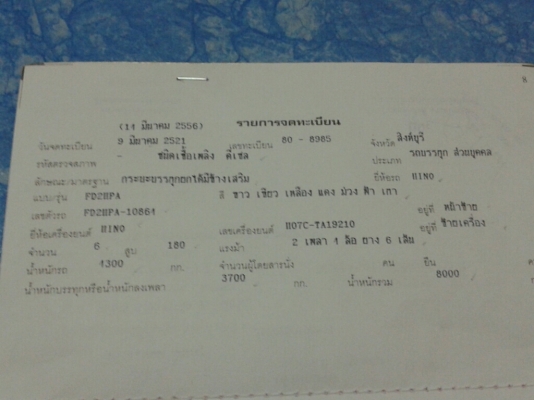 8
(11 มีนาคม 2556) รายการจดทะเบียน
วันจดทะเบียน 9 มีนาคม 2521 เลขทะเบียน 80 - 8985 จังหวัด สิงห์บุรี
รหัสตรวจสภาพ - ชนิดเชื้อเพลิง ดีเซล ประเภท รถบรรทุก ส่วนบุคคล
ลักษณะ/มาตรฐาน กระบะบรรทุกยกได้มีข้างเสริม ยี่ห้อรถ HINO
แบบ/รุ่น FD2HPA สี ขาว เขียว เหลือง แดง ม่วง ฟ้า เทา
เลขตัวรถ FD2HPA-10861 อยู่ที่ หน้าซ้าย
ยี่ห้อเครื่องยนต์ HINO เลขเครื่องยนต์ H07C-TA19210 อยู่ที่ ซ้ายเครื่อง
จำนวน 6 สูบ 180 แรงม้า 2 เพลา 4 ล้อ ยาง 6 เส้น
น้ำหนักรถ 4300 กก. จำนวนผู้โดยสารนั่ง คน ยืน
น้ำหนักบรรทุกหรือน้ำหนักลงเพลา 3700 กก. น้ำหนักรวม 8000